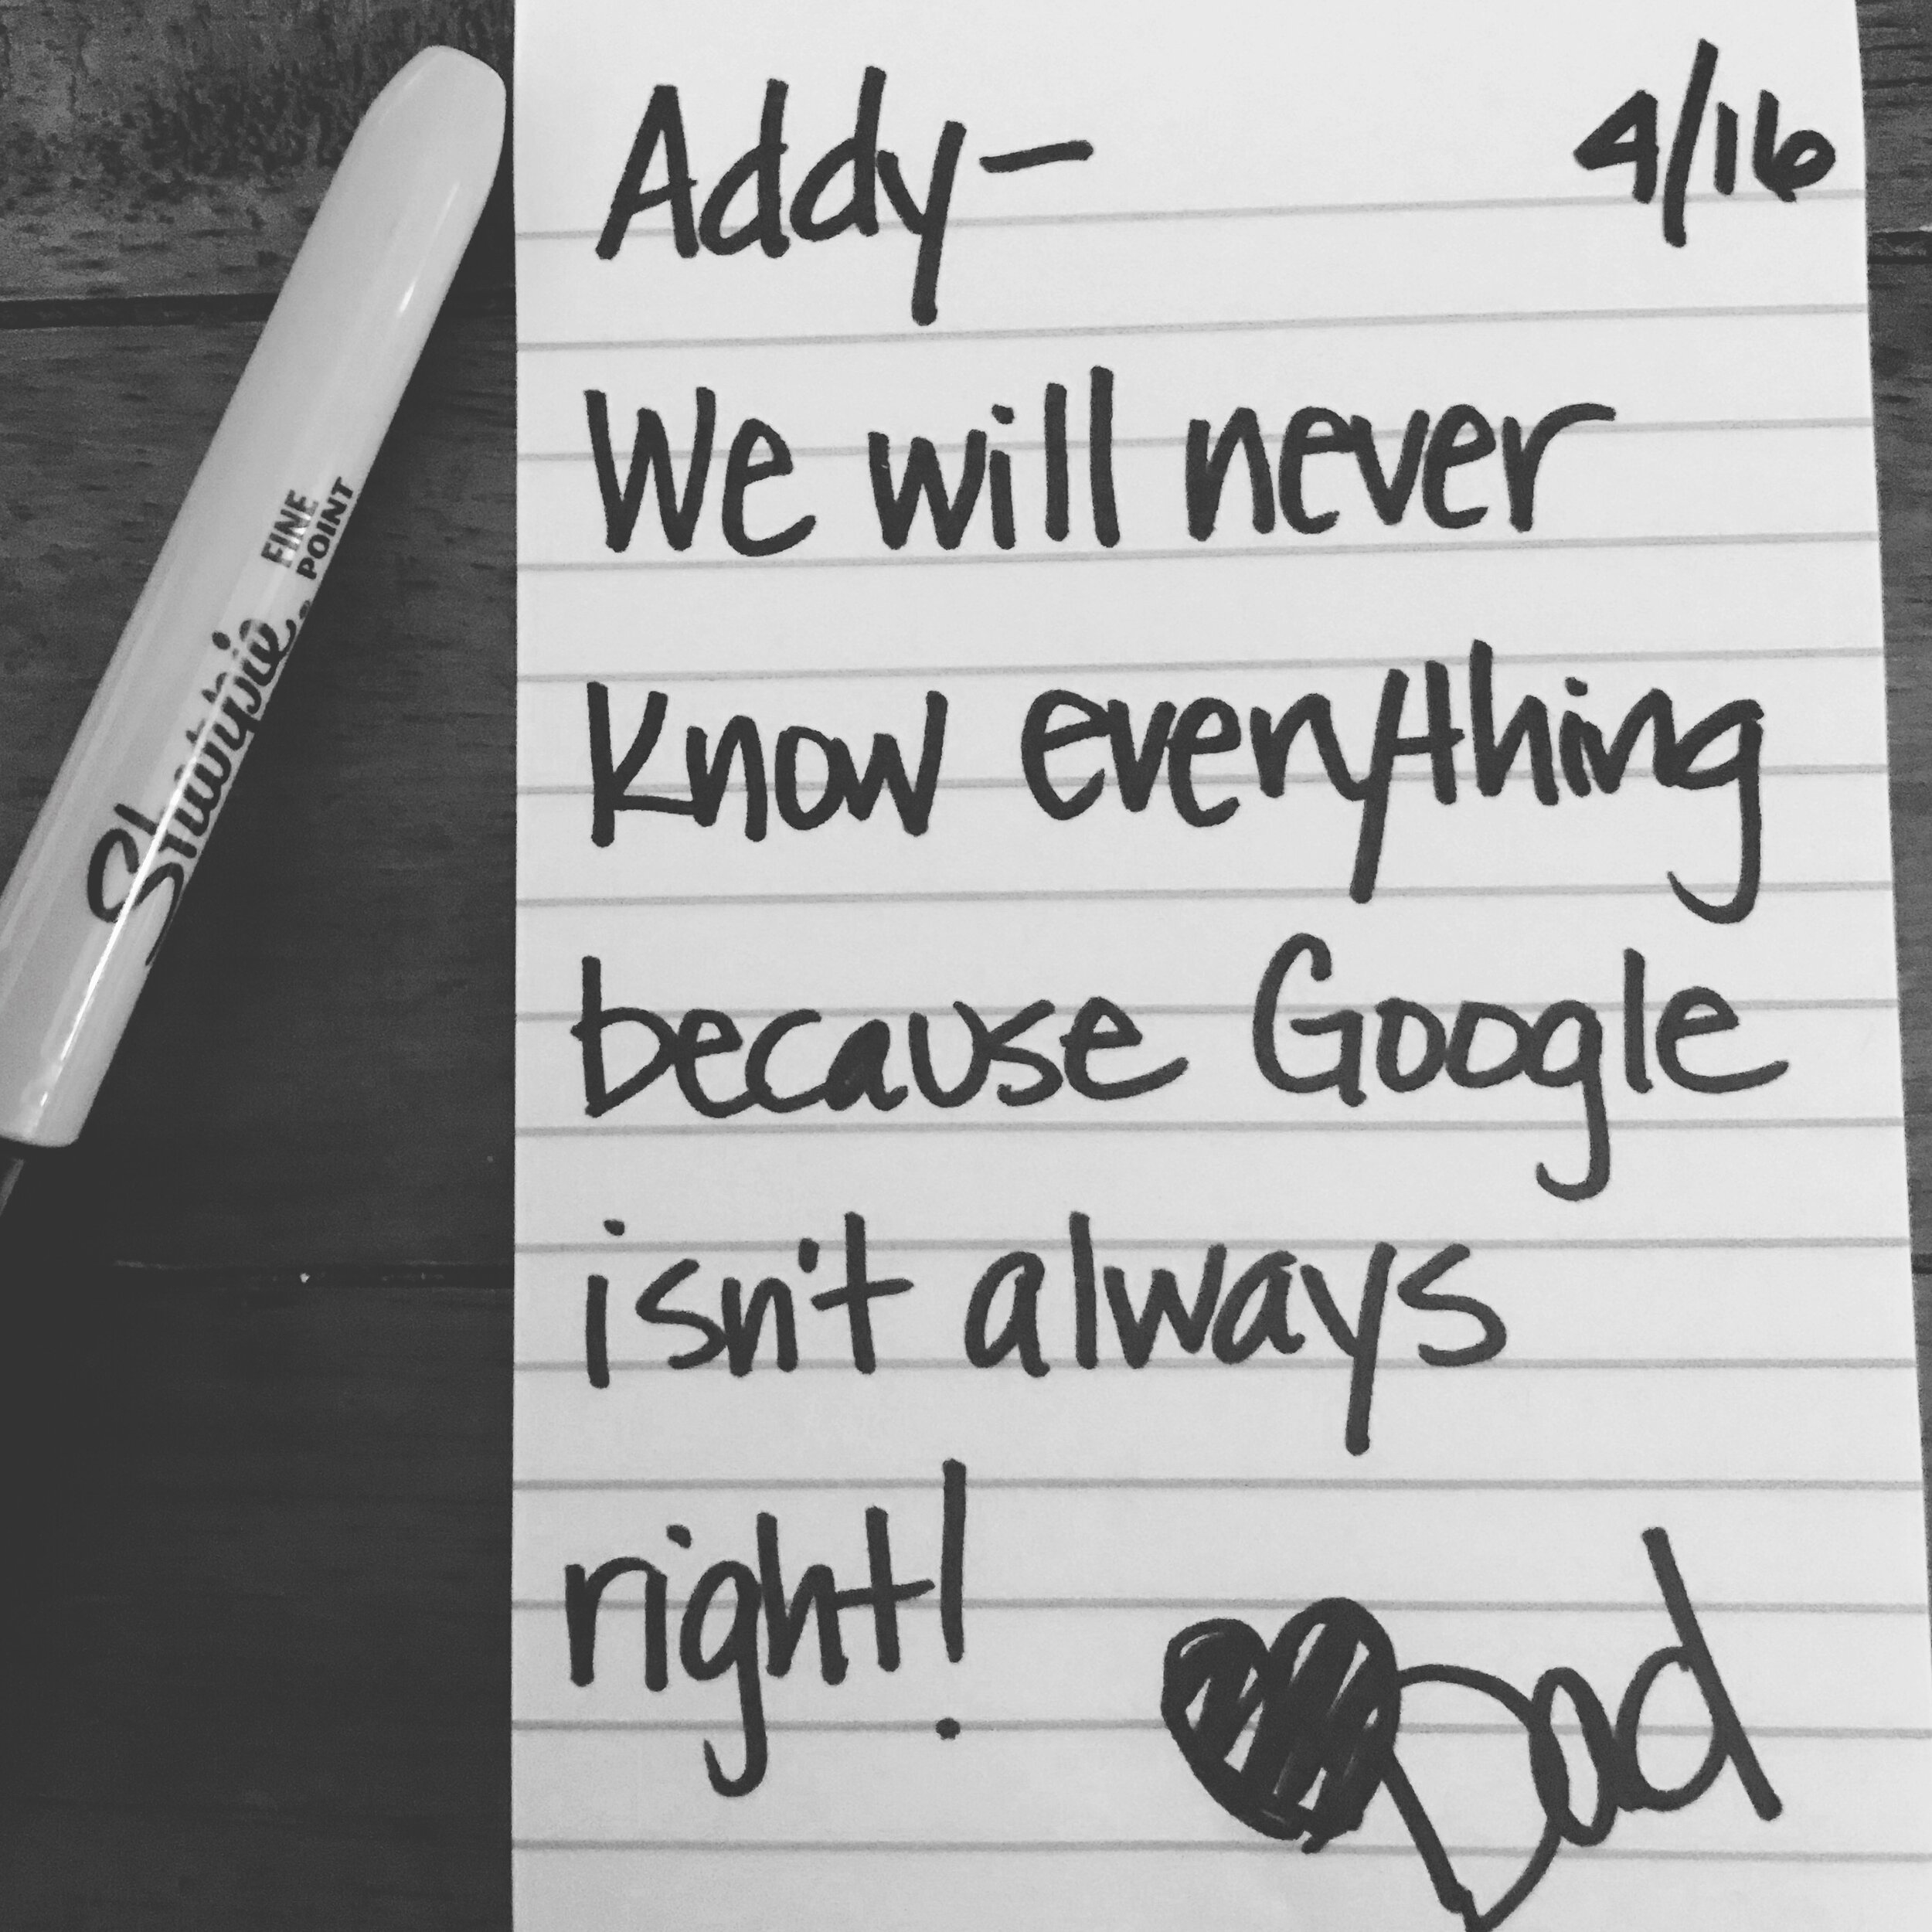 Addy- 4/16
We will never
know everything
because Google
isn't always
right!
Dad
Sharpie.
FINE
POINT